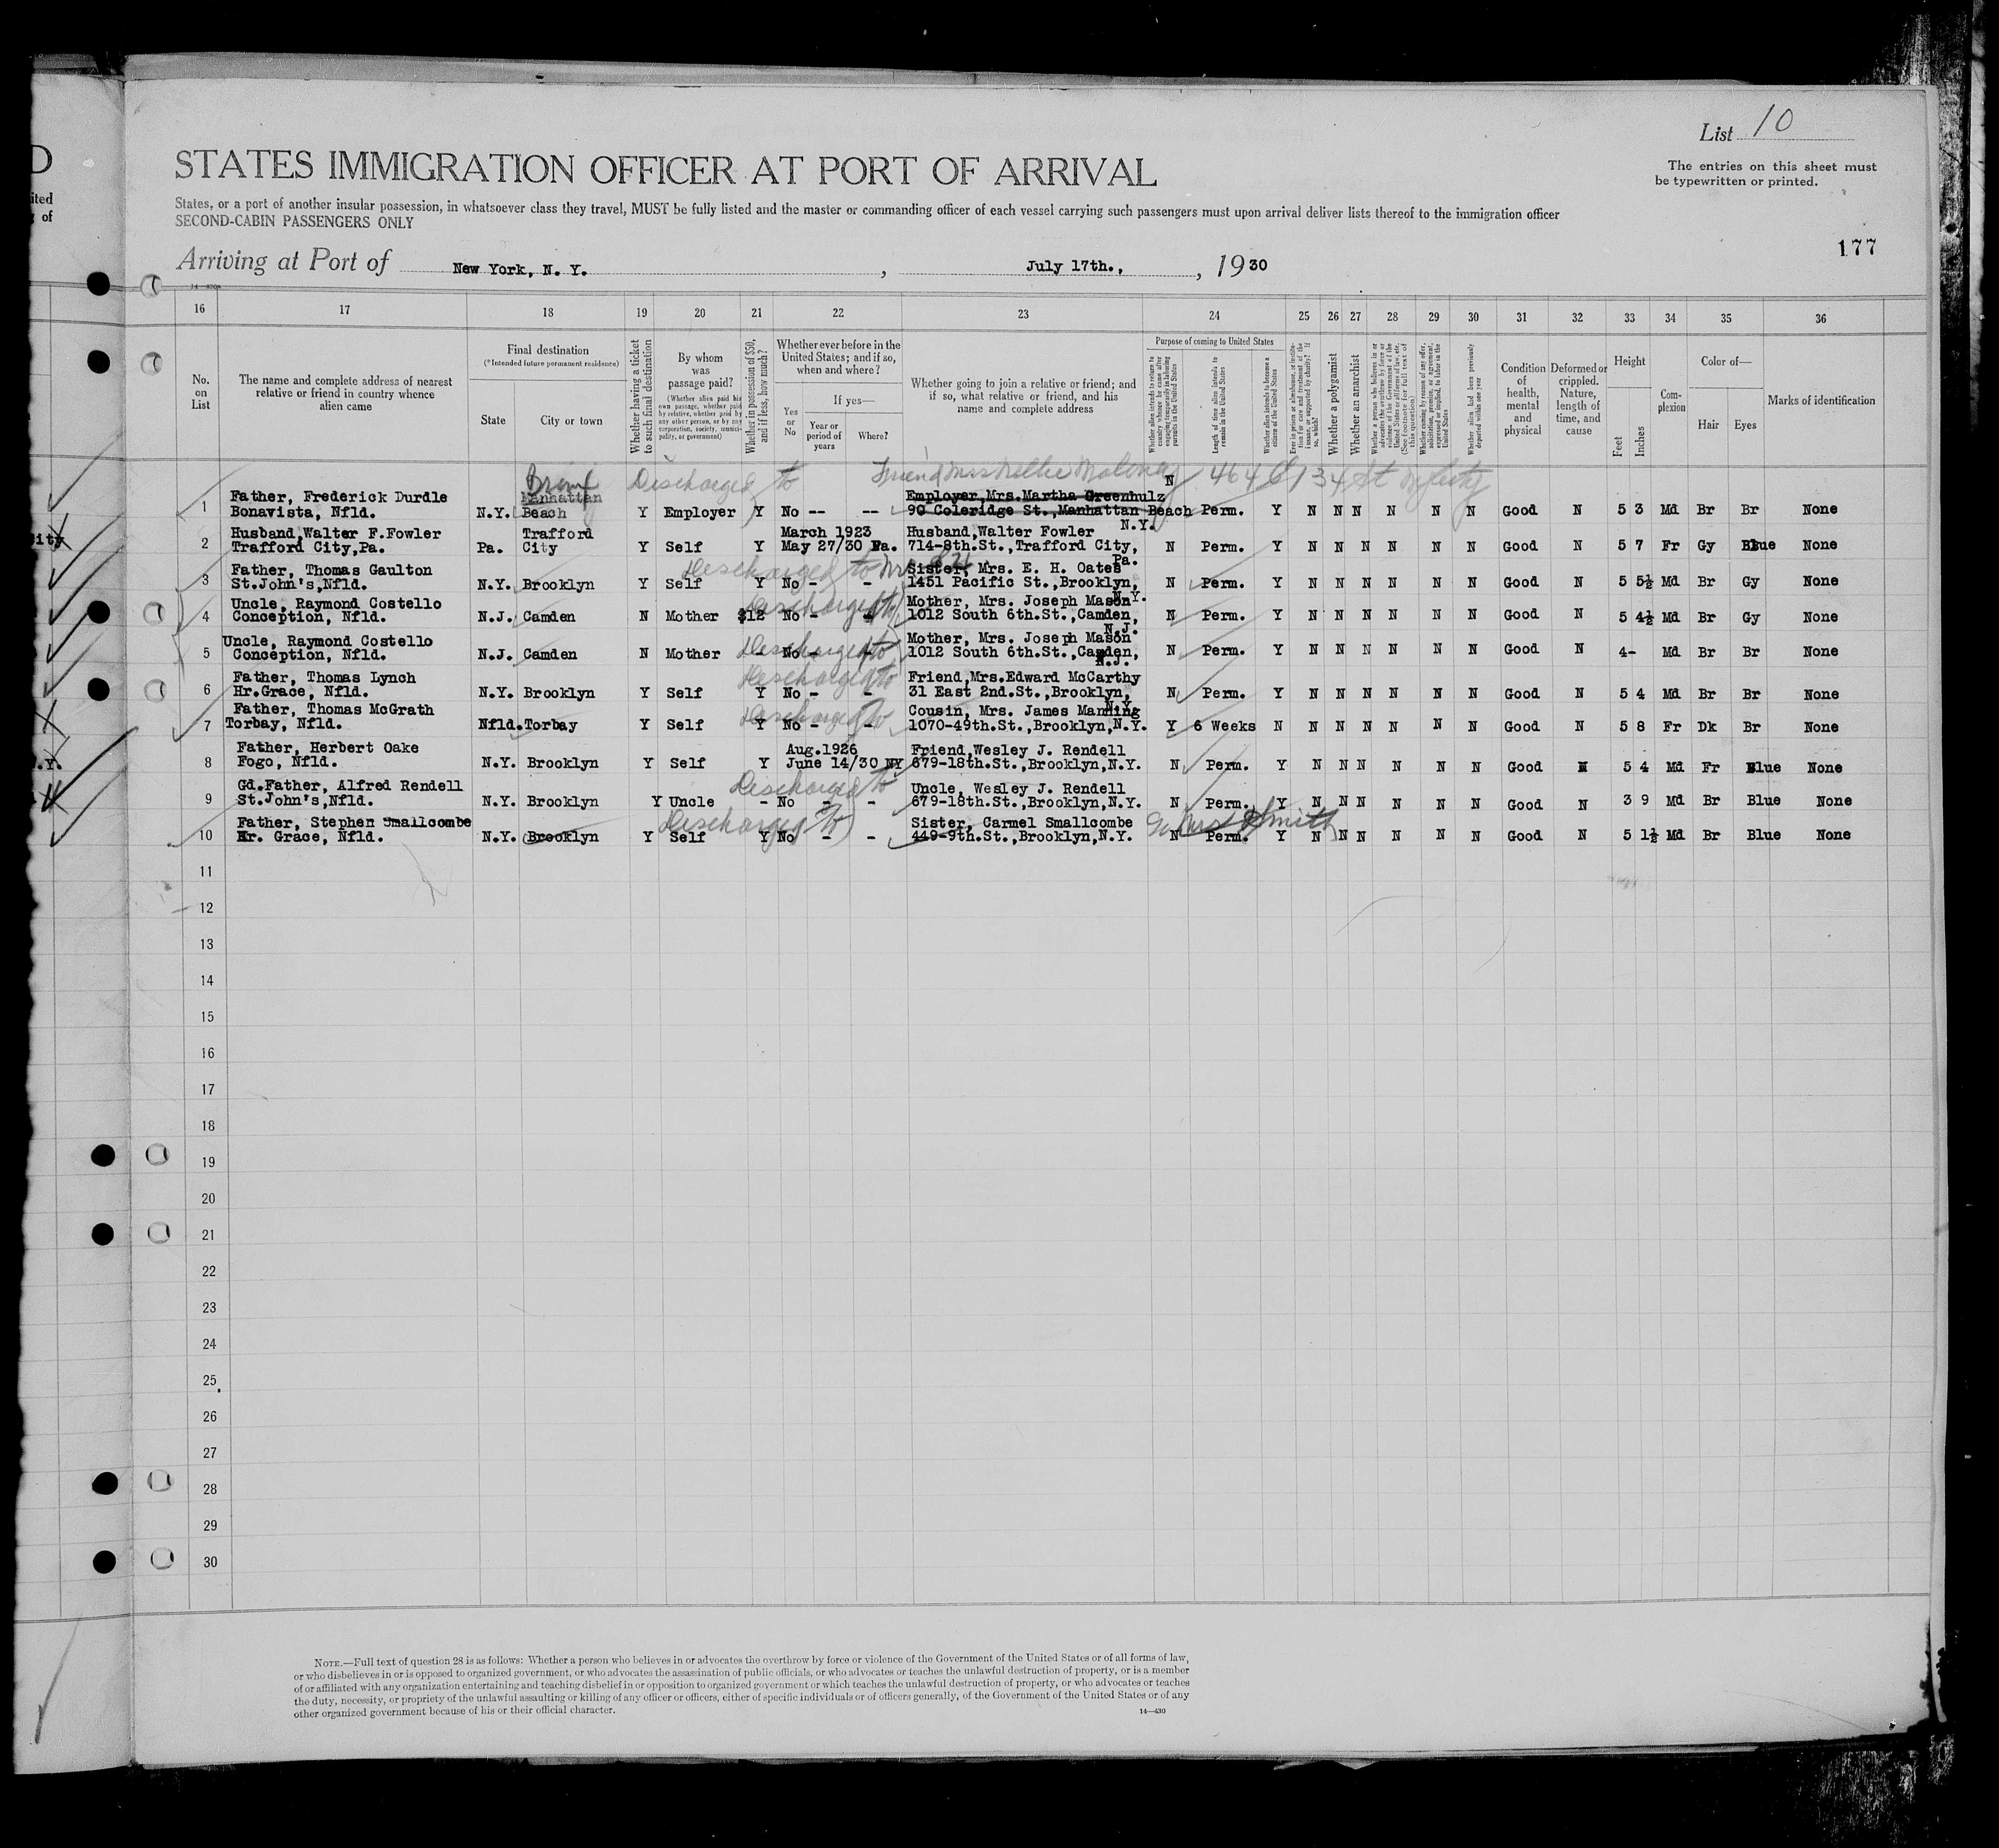 List 10
STATES IMMIGRATION OFFICER AT PORT OF ARRIVAL
The entries on this sheet must
be typewritten or printed.
States, or a port of another insular possession, in whatsoever class they travel, MUST be fully listed and the master or commanding officer of each vessel carrying such passengers must upon arrival deliver lists thereof to the immigration officer
SECOND-CABIN PASSENGERS ONLY
177
Arriving at Port of New York, N. Y. , July 17th., , 1930
16 17 18 19 20 21 22 23 24 25 26 27 28 29 30 31 32 33 34 35 36
No. on List
The name and complete address of nearest relative or friend in country whence alien came
Final destination
(*Intended future permanent residence)
State
City or town
Whether having a ticket to such final destination
By whom was passage paid?
(Whether alien paid his own passage, whether paid by relative, whether paid by any other person, or by any corporation, society, municipality, or government)
Whether in possession of $50, and if less, how much?
Whether ever before in the United States; and if so, when and where?
Yes or No
If yes—
Year or period of years
Where?
Whether going to join a relative or friend; and if so, what relative or friend, and his name and complete address
Purpose of coming to United States
Whether alien intends to return to country whence he came after engaging temporarily in laboring pursuits in the United States
Length of time alien intends to remain in the United States
Whether alien intends to become a citizen of the United States
Whether a polygamist
Whether an anarchist
Condition of health, mental and physical
Deformed or crippled. Nature, length of time, and cause
Height
Feet
Inches
Complexion
Color of—
Hair
Eyes
Marks of identification
Bronx Discharged to Friend Mrs Nellie 464 E 134 St
1 Father, Frederick Durdle Manhattan Employer, Mrs. Martha Greenhulz N
Bonavista, Nfld. N.Y. Beach Y Employer Y No -- -- 90 Coleridge St., Manhattan Beach Perm. Y N N N N N N Good N 5 3 Md Br Br None
N.Y.
2 Husband, Walter F. Fowler Trafford March 1923 Husband, Walter Fowler
Trafford City, Pa. Pa. City Y Self Y May 27/30 Pa. 714-8th.St., Trafford City, N Perm. Y N N N N N N Good N 5 7 Fr Gy Blue None
Pa.
Discharged to
3 Father, Thomas Gaulton Sister, Mrs. E. H. Oates
St.John's, Nfld. N.Y. Brooklyn Y Self Y No - - 1451 Pacific St., Brooklyn, N Perm. Y N N N N N N Good N 5 5½ Md Br Gy None
N.Y.
Discharged to
4 Uncle, Raymond Costello Mother, Mrs. Joseph Mason
Conception, Nfld. N.J. Camden N Mother $12 No - - 1012 South 6th.St., Camden, N Perm. Y N N N N N N Good N 5 4½ Md Br Gy None
N.J.
Discharged to
5 Uncle, Raymond Costello Mother, Mrs. Joseph Mason
Conception, Nfld. N.J. Camden N Mother - No - - 1012 South 6th.St., Camden, N Perm. Y N N N N N N Good N 4- Md Br Br None
N.J.
Discharged to
6 Father, Thomas Lynch Friend, Mrs. Edward McCarthy
Hr.Grace, Nfld. N.Y. Brooklyn Y Self Y No - - 31 East 2nd.St., Brooklyn, N Perm. Y N N N N N N Good N 5 4 Md Br Br None
N.Y.
Discharged to
7 Father, Thomas McGrath Cousin, Mrs. James Manning
Torbay, Nfld. Nfld. Torbay Y Self Y No - - 1070-49th.St., Brooklyn, N.Y. Y 6 Weeks N N N N N N N Good N 5 8 Fr Dk Br None
8 Father, Herbert Oake Aug.1926 Friend, Wesley J. Rendell
Fogo, Nfld. N.Y. Brooklyn Y Self Y June 14/30 NY 679-18th.St., Brooklyn, N.Y. N Perm. Y N N N N N N Good N 5 4 Md Fr Blue None
Discharged to
9 Gd.Father, Alfred Rendell Uncle, Wesley J. Rendell
St.John's, Nfld. N.Y. Brooklyn Y Uncle - No - - 679-18th.St., Brooklyn, N.Y. N Perm. Y N N N N N N Good N 3 9 Md Br Blue None
Discharged to Mrs Smith
10 Father, Stephen Smallcombe Sister, Carmel Smallcombe
Hr. Grace, Nfld. N.Y. Brooklyn Y Self Y No - - 449-9th.St., Brooklyn, N.Y. N Perm. Y N N N N N N Good N 5 1½ Md Br Blue None
11
12
13
14
15
16
17
18
19
20
21
22
23
24
25
26
27
28
29
30
NOTE.—Full text of question 28 is as follows: Whether a person who believes in or advocates the overthrow by force or violence of the Government of the United States or of all forms of law,
or who disbelieves in or is opposed to organized government, or who advocates the assassination of public officials, or who advocates or teaches the unlawful destruction of property, or is a member
of or affiliated with any organization entertaining and teaching disbelief in or opposition to organized government or which teaches the unlawful destruction of property, or who advocates or teaches
the duty, necessity, or propriety of the unlawful assaulting or killing of any officer or officers, either of specific individuals or of officers generally, of the Government of the United States or of any
other organized government because of his or their official character.
14—430